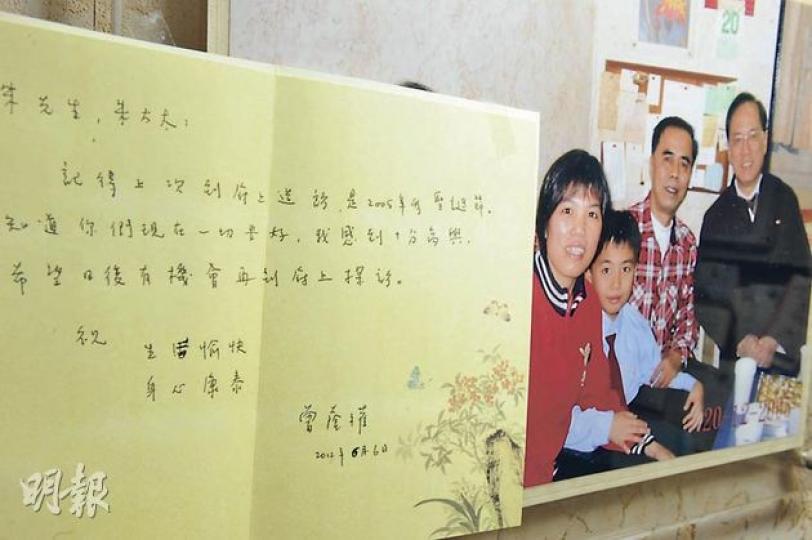 朱先生，朱太太：
記得上次到府上造訪，是2005年的聖誕節。
知道你們現在一切安好，我感到十分高興，
希望日後有機會再到府上探訪。
祝
生活愉快
身心康泰
曾蔭權
2012年6月6日
明報
20